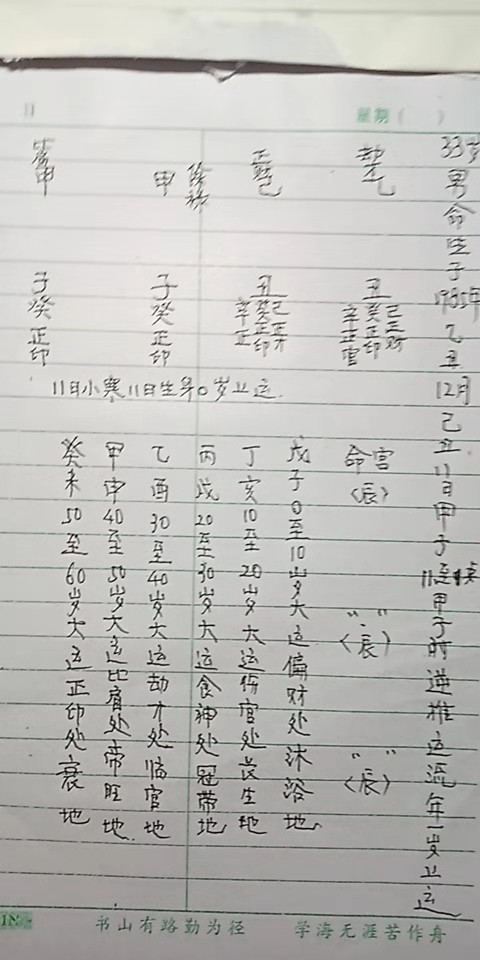 星期（ ）
33岁男命生于1985年乙丑12月己丑11日甲子11至1点甲子时逆推运流年一岁上运
劫才
乙
丑
己正财
癸正印
辛正官
命宫〈辰〉
" "〈辰〉
" "〈辰〉
正财
己
丑
己正才
癸正印
辛正
日
甲
子
癸
正印
比肩
甲
子
癸
正印
11日小寒11日生身0岁上运
戊子0至10岁大运偏财处沐浴地
丁亥10至20岁大运伤官处长生地
丙戌20至30岁大运食神处冠带地
乙酉30至40岁大运劫才处临官地
甲申40至50岁大运比肩处帝旺地
癸未50至60岁大运正印处衰地
书山有路勤为径 学海无涯苦作舟